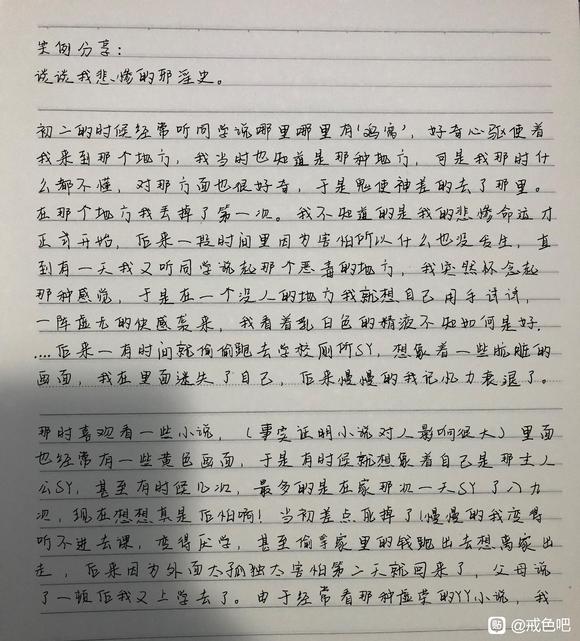 实例分享：
谈谈我悲惨的邪淫史。
初二的时候经常听同学说哪里哪里有‘鸡窝’，好奇心驱使着
我来到那个地方，我当时也知道是那种地方，可是我那时什
么都不懂，对那方面也很好奇，于是鬼使神差的去了那里。
在那个地方我丢掉了第一次。我不知道的是我的悲惨命运才
正式开始，后来一段时间里因为害怕所以什么也没发生，直
到有一天我又听同学说起那个恶毒的地方，我突然怀念起
那种感觉，于是在一个没人的地方我就想自己用手试试，
一阵虚无的快感袭来，我看着乳白色的精液不知如何是好.
....后来一有时间就偷偷跑去学校厕所SY，想象着一些肮脏的
画面，我在里面迷失了自己，后来慢慢的我记忆力衰退了。
那时喜观看一些小说，（事实证明小说对人影响很大）里面
也经常有一些黄色画面，于是有时候就想象着自己是那主人
公SY，甚至有时候几次，最多的是在家那次一天SY了八九
次，现在想想真是后怕啊！当初差点死掉了！慢慢的我变得
听不进去课，变得厌学，甚至偷拿家里的钱跑出去想离家出
走，后来因为外面太孤独太害怕第二天就回来了，父母说
了一顿后我又上学去了。由于经常看那种虚荣的YY小说，我
贴 @戒色吧